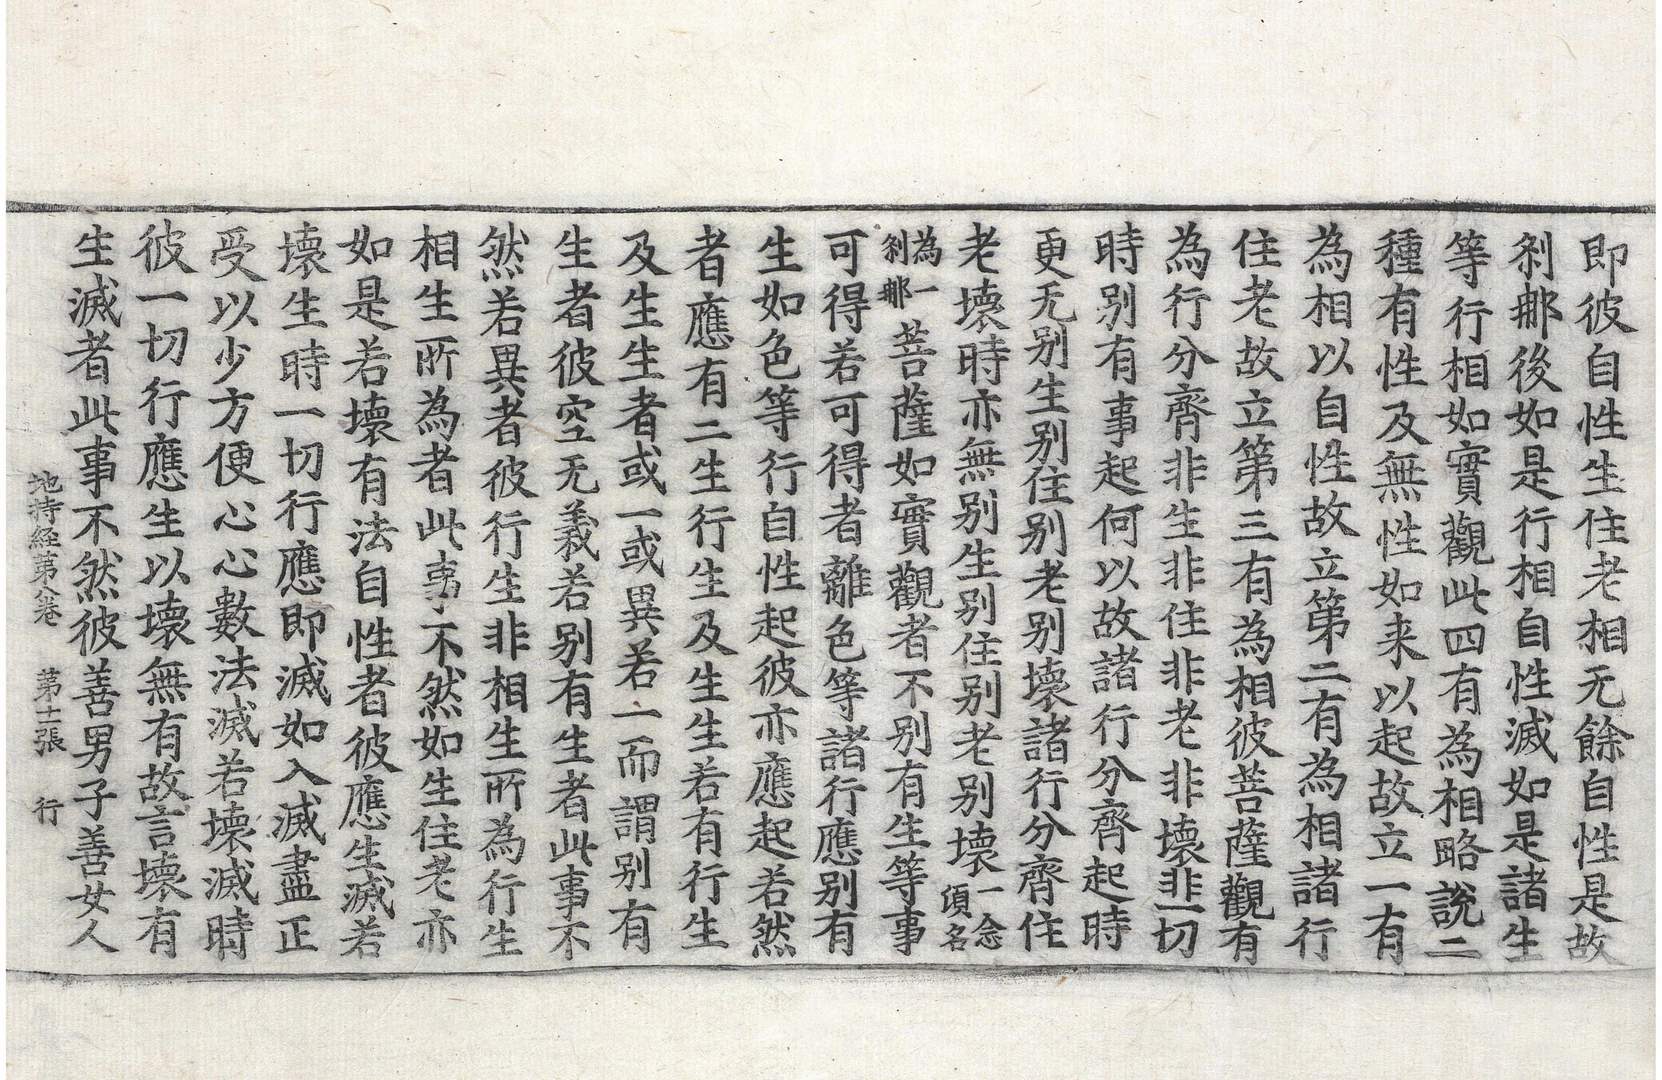 即彼自性生住老相无餘自性是故
刹那後如是行相自性滅如是諸生
等行相如實觀此四有為相略說二
種有性及無性如来以起故立一有
為相以自性故立第二有為相諸行
住老故立第三有為相彼菩薩觀有
為行分齊非生非住非老非壞非一切
時别有事起何以故諸行分齊起時
更无别生别住别老别壞諸行分齊住
老壞時亦無别生别住别老别壞一念須名
為一刹那菩薩如實觀者不别有生等事
可得若可得者離色等諸行應别有
生如色等行自性起彼亦應起若然
者應有二生行生及生生若有行生
及生生者或一或異若一而謂别有
生者彼空无義若别有生者此事不
然若異者彼行生非相生所為行生
相生所為者此事不然如生住老亦
如是若壞有法自性者彼應生滅若
壞生時一切行應即滅如入滅盡正
受以少方便心心數法滅若壞滅時
彼一切行應生以壞無有故言壞有
生滅者此事不然彼善男子善女人
地持經第八卷 第十一張 行